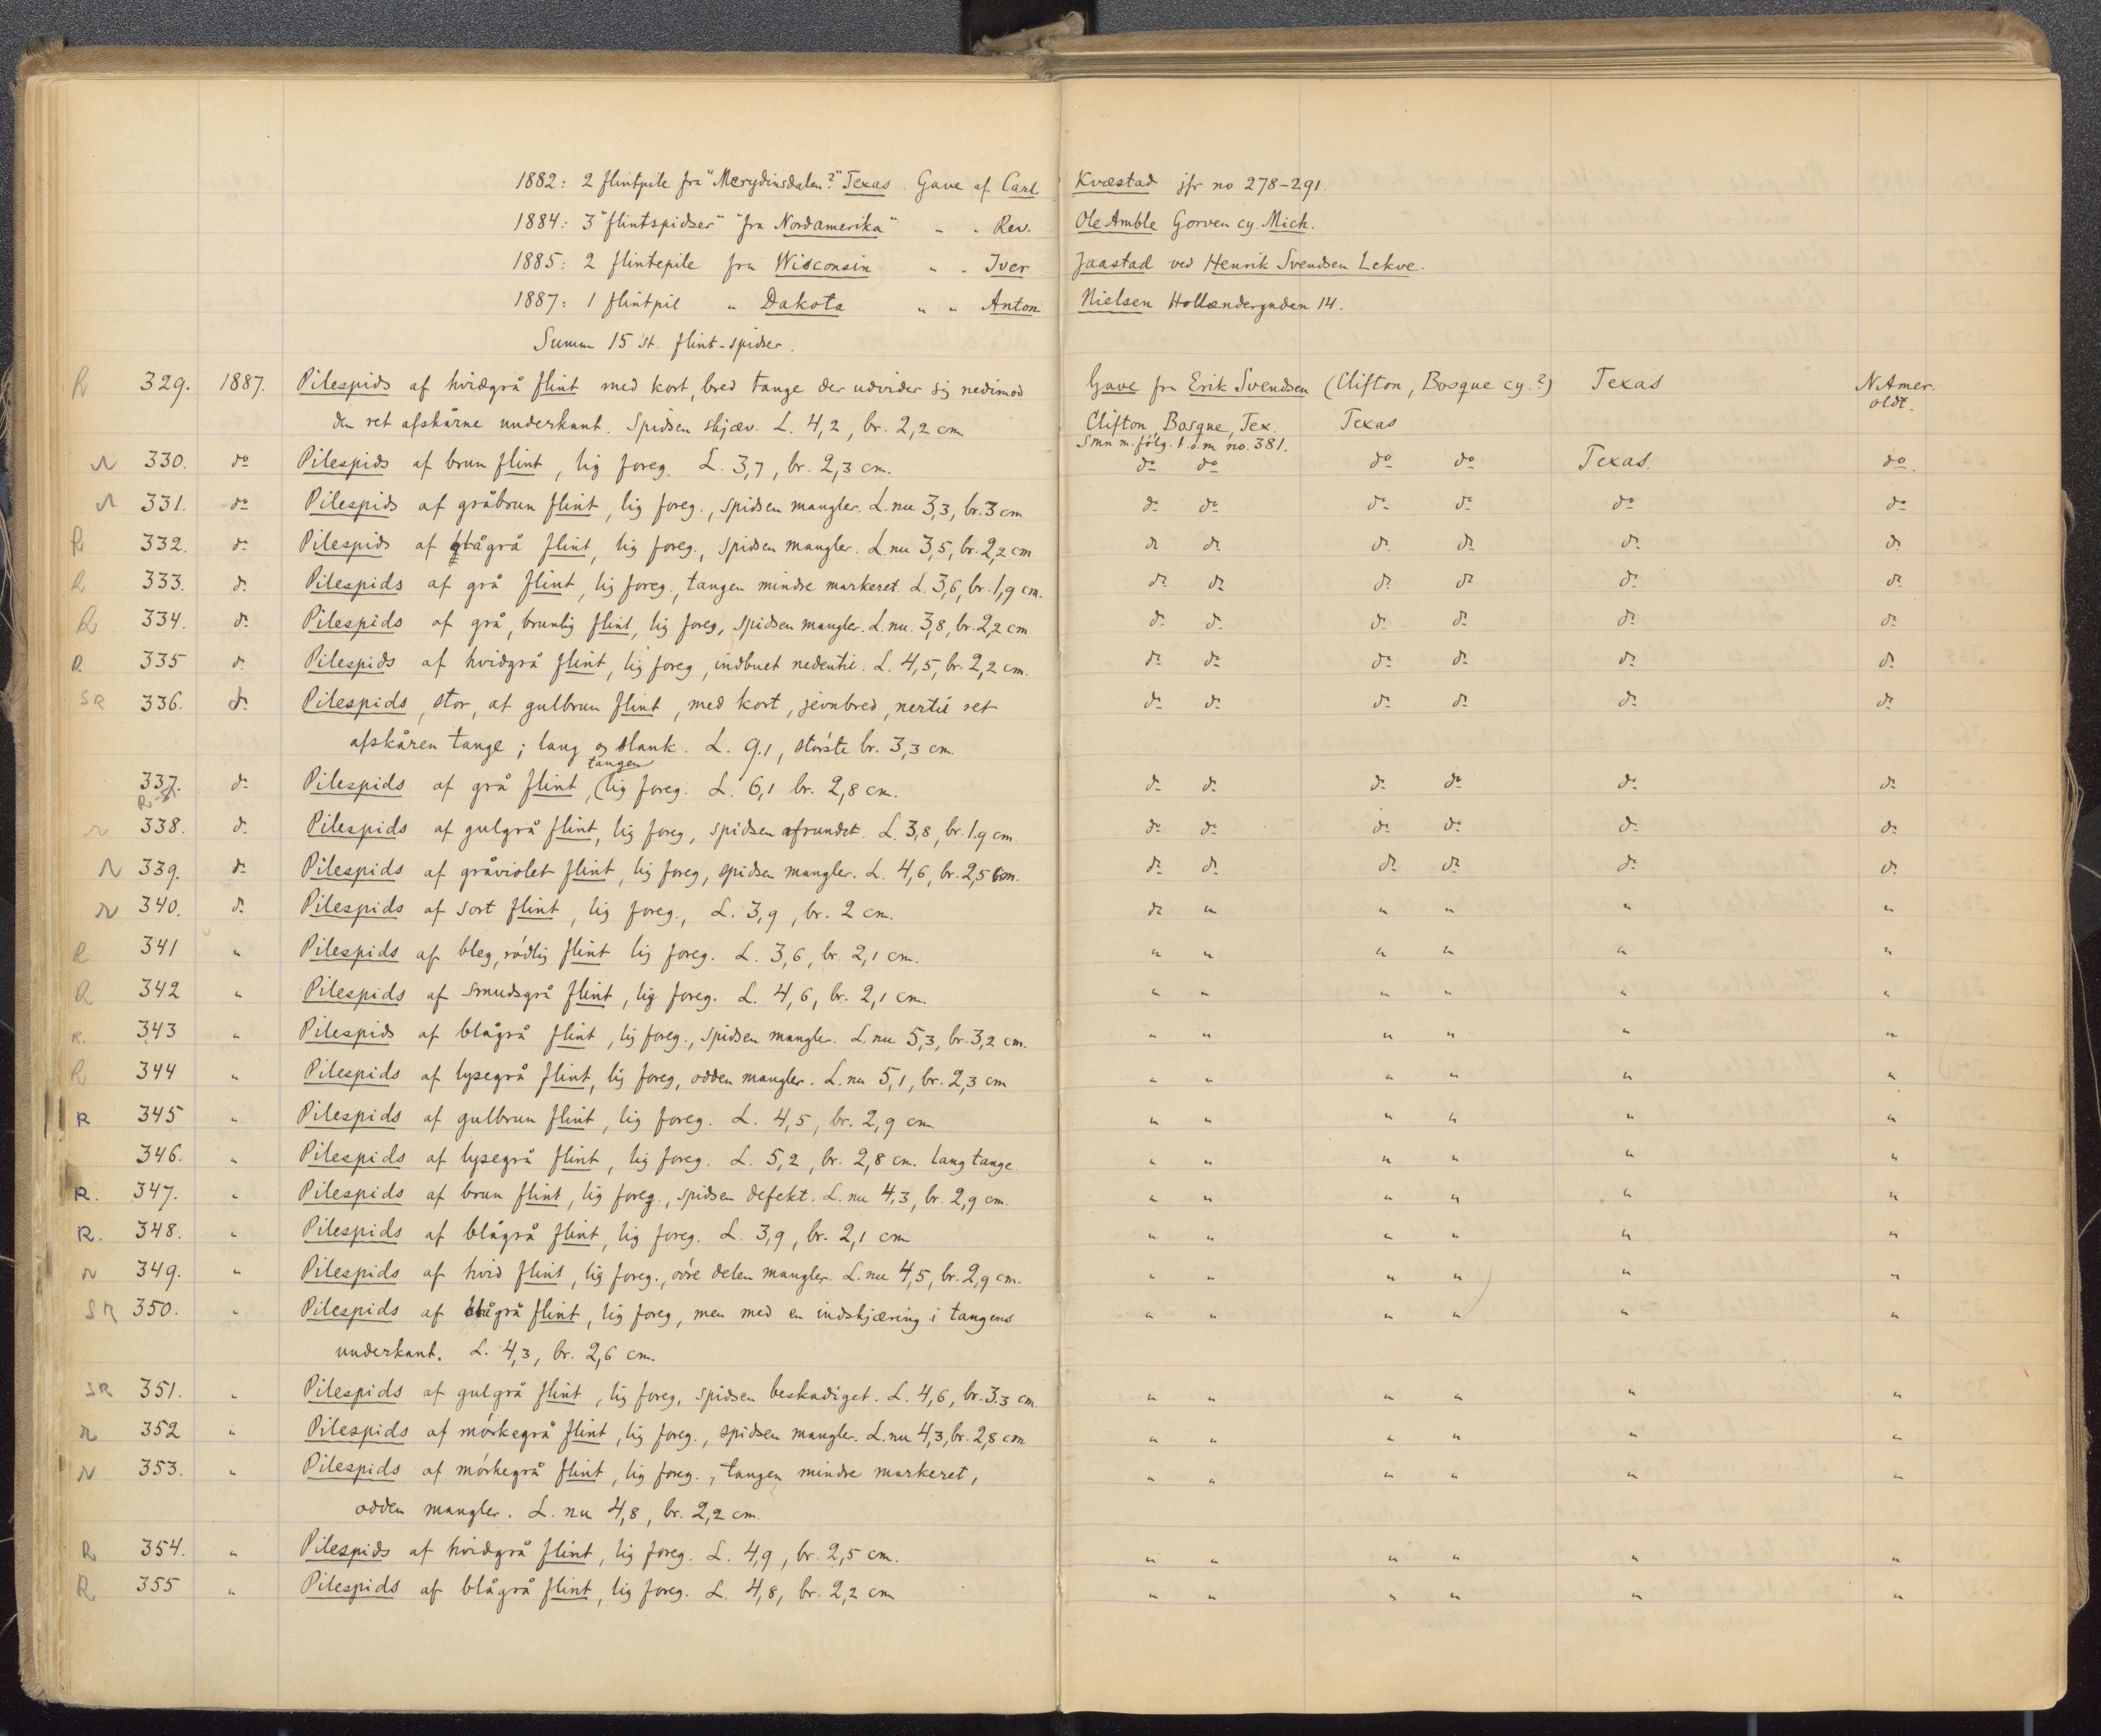 1882: 2 flintpile fra "Merydinsdalen?" Texas. Gave af Carl Kvæstad jfr no 278-291.
1884: 3 "flintspidser" "fra Nordamerika" " " Rev. Ole Amble Gorven cy. Mich.
1885: 2 flintepile fra Wisconsin " " Iver Jaastad ved Henrik Svendsen Lekve.
1887: 1 flintpil " Dakota " " Anton Nielsen Hollændergaden 14.
Summa 15 st. flint-spidser.
R 329. 1887. Pilespids af hvidgrå flint med kort, bred tange der udvider sig nedimod Gave fra Erik Svendsen (Clifton, Bosque cy.?) Texas N.Amer. oldt.
den ret afskårne underkant. Spidsen skjæv. L. 4,2, br. 2,2 cm Clifton, Bosque, Tex. Texas
Smn m. følg. t.o.m no. 381.
R 330. do Pilespids af brun flint, lig foreg. L. 3,7, br. 2,3 cm. do do do do Texas. do.
R 331. do Pilespids af gråbrun flint, lig foreg., spidsen mangler. L. nu 3,3, br. 3 cm do do do do do do
R 332. do Pilespids af blågrå flint, lig foreg., spidsen mangler. L. nu 3,5, br. 2,2 cm do do do do do do
R 333. do Pilespids af grå flint, lig foreg., tangen mindre markeret. L. 3,6, br. 1,9 cm. do do do do do do
R 334. do Pilespids af grå, brunlig flint, lig foreg, spidsen mangler. L. nu. 3,8, br. 2,2 cm do do do do do do
R 335 do Pilespids af hvidgrå flint, lig foreg, indbuet nedentil. L. 4,5, br. 2,2 cm. do do do do do do
SR 336. do Pilespids, stor, af gulbrun flint, med kort, jevnbred, nertil ret do do do do do do
afskåren tange; lang og slank. L. 9.1, største br. 3,3 cm.
337. do Pilespids af grå flint, (tangen lig foreg. L. 6,1 br. 2,8 cm. do do do do do do
R
R 338. do Pilespids af gulgrå flint, lig foreg, spidsen afrundet. L. 3,8, br. 1.9 cm do do do do do do
R 339. do Pilespids af gråviolet flint, lig foreg, spidsen mangler. L. 4,6, br. 2,5 cm. do do do do do do
R 340. do Pilespids af sort flint, lig foreg., L. 3,9, br. 2 cm. do " " " " "
R 341 " Pilespids af bleg, rødlig flint lig foreg. L. 3,6, br. 2,1 cm. " " " " " "
R 342 " Pilespids af smudsgrå flint, lig foreg. L. 4,6, br. 2,1 cm. " " " " " "
R. 343 " Pilespids af blågrå flint, lig foreg., spidsen mangler. L. nu 5,3, br. 3,2 cm. " " " " " "
R 344 " Pilespids af lysegrå flint, lig foreg, odden mangler. L. nu 5,1, br. 2,3 cm " " " " " "
R 345 " Pilespids af gulbrun flint, lig foreg. L. 4,5, br. 2,9 cm " " " " " "
346. " Pilespids af lysegrå flint, lig foreg. L. 5,2, br. 2,8 cm. Lang tange. " " " " " "
R. 347. " Pilespids af brun flint, lig foreg., spidsen defekt. L. nu 4,3, br. 2,9 cm. " " " " " "
R. 348. " Pilespids af blågrå flint, lig foreg. L. 3,9, br. 2,1 cm " " " " " "
R 349. " Pilespids af hvid flint, lig foreg., øvre delen mangler. L. nu 4,5, br. 2,9 cm. " " " " " "
SR 350. " Pilespids af blågrå flint, lig foreg, men med en indskjæring i tangens " " " " " "
underkant. L. 4,3, br. 2,6 cm.
SR 351. " Pilespids af gulgrå flint, lig foreg, spidsen beskadiget. L. 4,6, br. 3.3 cm. " " " " " "
R 352 " Pilespids af mørkegrå flint, lig foreg., spidsen mangler. L. nu 4,3, br. 2,8 cm " " " " " "
R 353. " Pilespids af mørkegrå flint, lig foreg., tangen mindre markeret, " " " " " "
odden mangler. L. nu 4,8, br. 2,2 cm.
R 354. " Pilespids af hvidgrå flint, lig foreg. L. 4,9, br. 2,5 cm. " " " " " "
R 355 " Pilespids af blågrå flint, lig foreg. L. 4,8, br. 2,2 cm " " " " " "